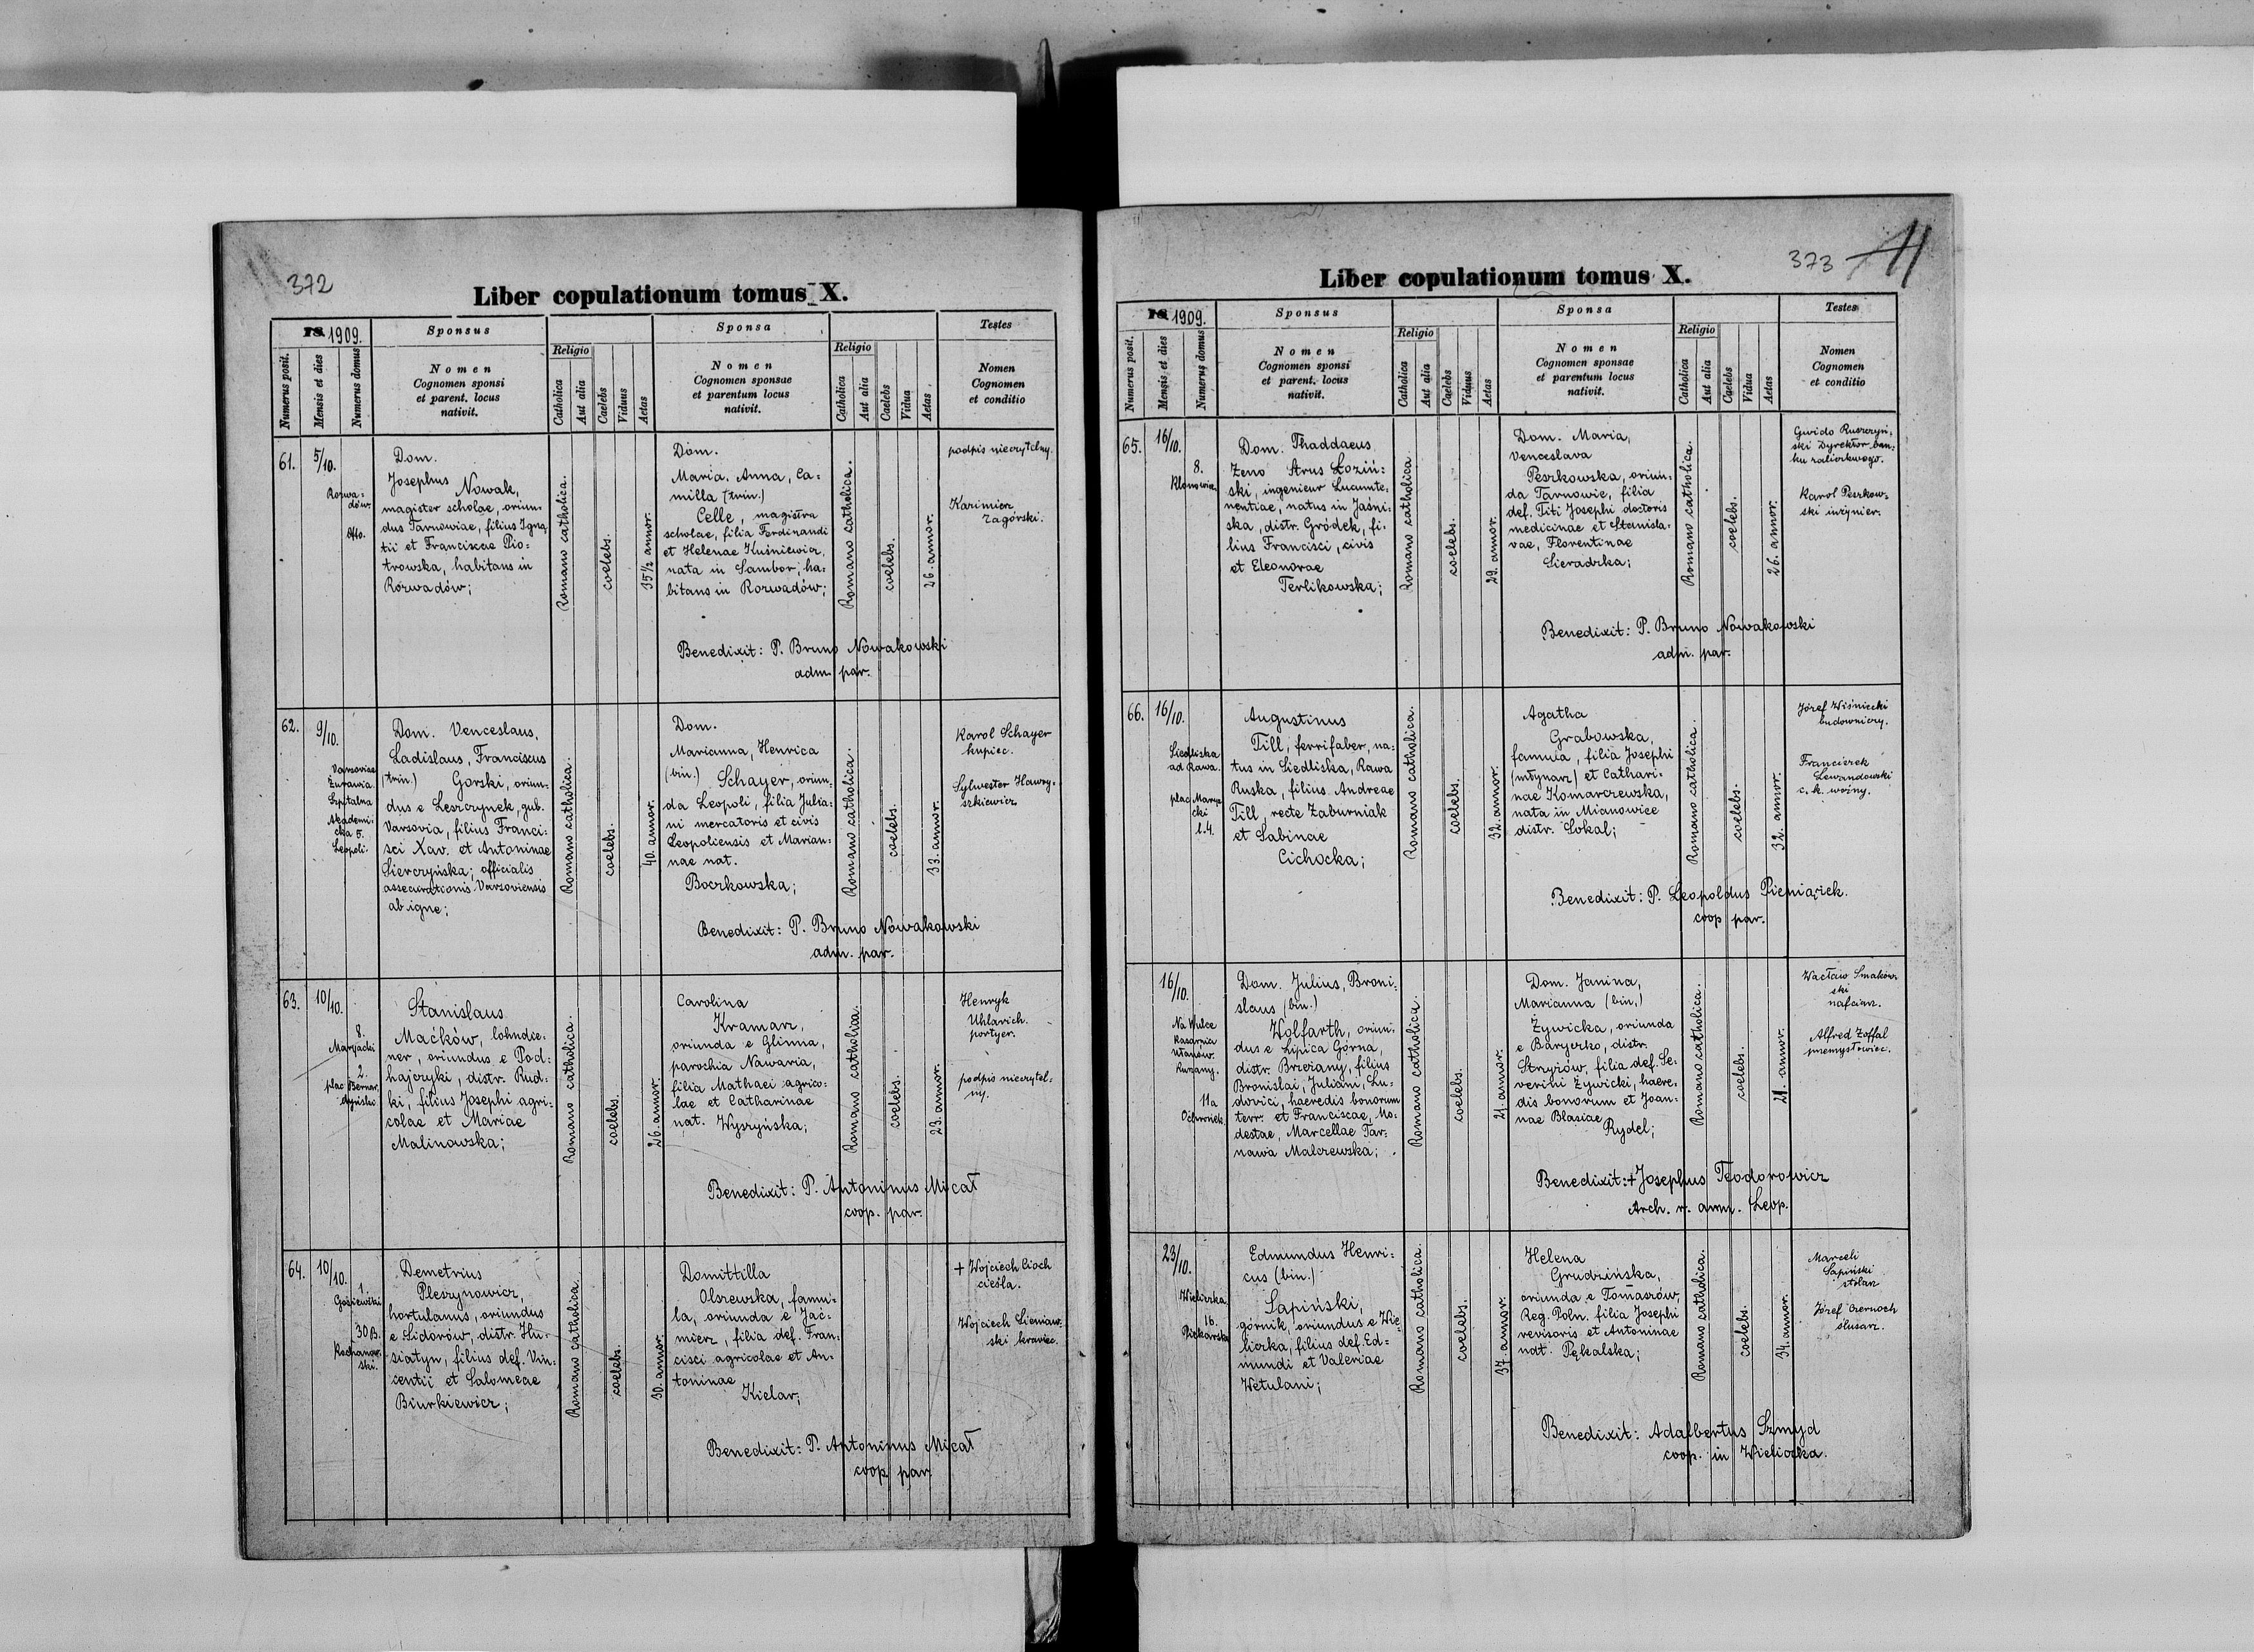 372
Liber copulationum tomus X.
18 1909.
Numerus posit.
Mensis et dies
Numerus domus
Sponsus
Nomen
Cognomen sponsi
et parent. locus
nativit.
Religio
Catholica
Aut alia
Caelebs
Viduus
Aetas
Sponsa
Nomen
Cognomen sponsae
et parentum locus
nativit.
Religio
Catholica
Aut alia
Caelebs
Vidua
Aetas
Testes
Nomen
Cognomen
et conditio
61.
5/10.
Rozwa=
dów.
Dom.
Josephus Nowak,
magister scholae, oriun=
dus Tarnowiae, filius Igna=
tii et Franciscae Pio=
trowska, habitans in
Rozwadów;
Romano catholica.
coelebs.
35 1/2 annor.
Dom.
Maria, Anna, Ca=
milla (trin.)
Celle, magistra
scholae, filia Ferdinandi
et Helenae Kuśniewicz,
nata in Sambor; ha=
bitans in Rozwadów;
Romano catholica.
coelebs.
26. annor.
podpis nieczytelny.
Kazimierz
Zagórski.
Benedixit: P. Bruno Nowakowski
adm. par.
62.
9/10.
Varsoviae
Żurawia.
Szpitalna
Akademi=
cka 5.
Leopoli.
Dom. Venceslaus,
Ladislaus, Franciscus
(trin.) Gorski, oriun=
dus e Leszczynek, gub.
Varsovia, filius Franci=
sci Xav. et Antoninae
Sierczyńska; officialis
assecurationis Varsoviensis
ab igne;
Romano catholica.
coelebs.
40. annor.
Dom.
Marianna, Henrica
(bin.) Schayer, oriun=
da Leopoli, filia Julia=
ni mercatoris et civis
Leopoliensis et Marian=
nae nat.
Boczkowska;
Romano catholica.
coelebs.
33. annor.
Karol Schayer
kupiec.
Sylwester Hawry=
szkiewicz
Benedixit: P. Bruno Nowakowski
adm. par.
63.
10/10.
8.
Maryacki
2.
plac Bernar=
dyński
Stanislaus
Maćków, lohndie=
ner, oriundus e Pod=
hajczyki, distr. Rud=
ki, filius Josephi agri=
colae et Mariae
Malinowska;
Romano catholica.
coelebs.
26. annor.
Carolina
Kramarz,
oriunda e Glinna,
parochia Nawaria,
filia Mathaei agrico=
lae et Catharinae
nat. Wyszyńska;
Romano catholica.
coelebs.
23. annor.
Henryk
Uhlarich.
portyer.
podpis nieczytel=
ny.
Benedixit: P. Antoninus Micał
coop. par.
64.
10/10.
1.
Gosiewski
30B.
Kochanow=
ski.
Demetrius
Pleszynowicz,
hortulanus, oriundus
e Sidorów, distr. Hu=
siatyn, filius def. Vin=
centii et Salomeae
Biurkiewicz;
Romano catholica.
coelebs.
30. annor.
Domittilla
Olszewska, famu=
la, oriunda e Jać=
mierz, filia def. Fran=
cisci agricolae et An=
toninae
Kielar;
+ Wojciech Cioch
cieśla.
Wojciech Sieniaw=
ski krawiec.
Benedixit: P. Antoninus Micał
coop par.
373
11
Liber copulationum tomus X.
18 1909.
Numerus posit.
Mensis et dies
Numerus domus
Sponsus
Nomen
Cognomen sponsi
et parent. locus
nativit.
Religio
Catholica
Aut alia
Caelebs
Viduus
Aetas
Sponsa
Nomen
Cognomen sponsae
et parentum locus
nativit.
Religio
Catholica
Aut alia
Caelebs
Vidua
Aetas
Testes
Nomen
Cognomen
et conditio
65.
16/10.
8.
Klonowicz.
Dom. Thaddaeus
Zeno Strus Łoziń=
ski, ingenieur Lucumte=
nentiae, natus in Jaśni=
ska, distr. Gródek, fi=
lius Francisci, civis
et Eleonorae
Terlikowska;
Romano catholica.
coelebs.
29. annor.
Dom. Maria,
Venceslava
Peszkowska, oriun=
da Tarnowie, filia
def. Titi Josephi doctoris
medicinae et Stanisla=
vae, Florentinae
Sieradzka;
Romano catholica.
coelebs.
26. annor.
Gwido
ski Dyrektor ban=
ku zaliczkowego.
Karol Peszkow=
ski inżynier.
Benedixit: P. Bruno Nowakowski
adm. par.
66.
16/10.
Siedliska
ad Rawa.
plac Marya
cki
l.4.
Augustinus
Till, ferrifaber, na=
tus in Siedliska, Rawa
Ruska, filius Andreae
Till, recte Zaburniak
et Sabinae
Cichocka;
Romano catholica.
coelebs.
32. annor.
Agatha
Grabowska,
famula, filia Josephi
(młynarz) et Cathari=
nae Komarczewska,
nata in Mianowice
distr. Sokal;
Romano catholica.
coelebs.
32. annor.
Józef Wiśniecki
budowniczy.
Franciszek
Lewandowski
c.k. woźny.
Benedixit: P. Leopoldus Pieniążek.
coop par.
16/10.
Na Wulce
Kasarnia
Ułanów.
11a
Ochronek.
Dom. Julius, Broni=
slaus (bin.)
Wolfarth, oriun=
dus e Lipica Górna,
distr. Brzeżany, filius
Bronislai, Juliani, Lu=
dovici, haeredis bonorum
terr. et Franciscae, Mo=
destae, Marcellae Tar=
nawa Malczewska;
Romano catholica.
coelebs.
21. annor.
Dom. Janina,
Marianna (bin.)
Żywicka, oriunda
e Baryczko, distr.
Strzyżów, filia def. Se=
verini Żywicki, haere=
dis bonorum et Joan=
nae Blasiae
Rydel;
Romano catholica.
coelebs.
21. annor.
Wacław Smakow
ski
nafciarz.
Alfred Zoffal
przemysłowiec.
Benedixit: + Josephus Teodorowicz
Arch. r. arm. Leop.
23/10.
Wieliczka.
16.
Piekarska
Edmundus Henri=
cus (bin.)
Sapiński,
górnik, oriundus e Wie=
liczka, filius def. Ed=
mundi et Valeriae
Wetulani;
Romano catholica.
coelebs.
37. annor.
Helena
Grudzińska,
oriunda e Tomaszów,
Reg. Poln. filia Josephi
revisoris et Antoninae
nat. Pękalska;
Romano catholica.
coelebs.
34. annor.
Marceli
Sapiński
stolarz
Józef Czernoch
ślusarz.
Benedixit: Adalbertus Szmyd
coop. in Wieliczka.